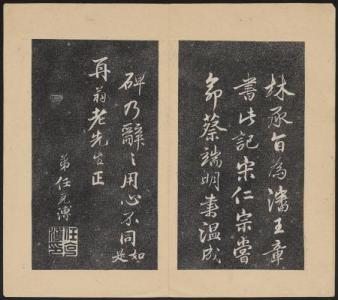 林承旨為潘王章
書此記宋仁宗嘗
命蔡端明書温成
碑乃辭之用心不同如
是
再翁老先生正
弟任元溥